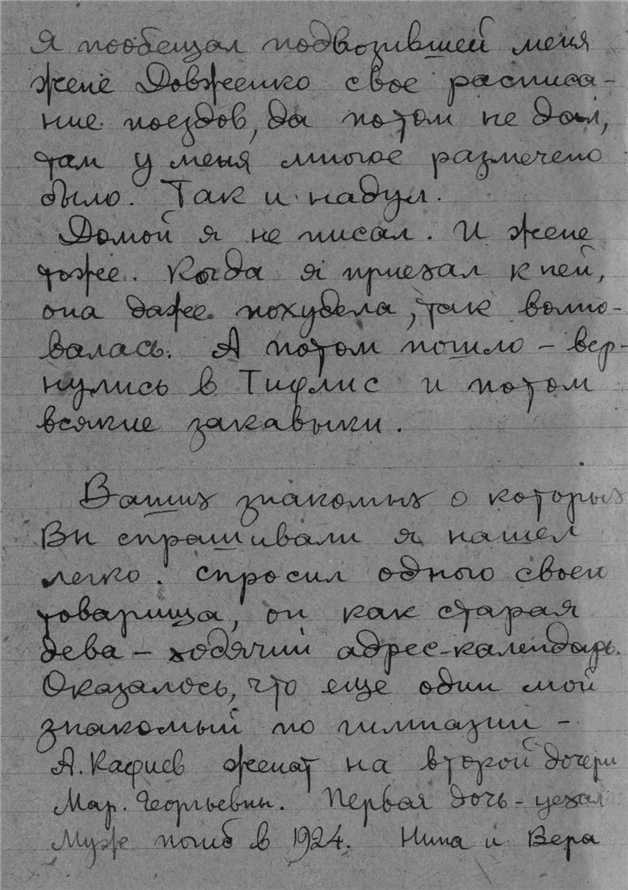 Я пообещал подвозившей меня
жене Довженко свое расписа-
ние поездов, да потом не дал,
там у меня многое размечено
было. Так и надул.
Домой я не писал. И жене
тоже. Когда я приехал к ней,
она даже похудела, так волно-
валась. А потом пошло – вер-
нулись в Тифлис и потом
всякие закавыки.
Ваших знакомых о которых
Вы спрашивали я нашел
легко. Спросил одного своего
товарища, он как старая
дева – ходячий адрес-календарь.
Оказалось, что еще один мой
знакомый по гимназии –
А. Кафиев женат на второй дочери
Мар. Георгьевны. Первая дочь -
Муж погиб в 1924. Нина и Вера